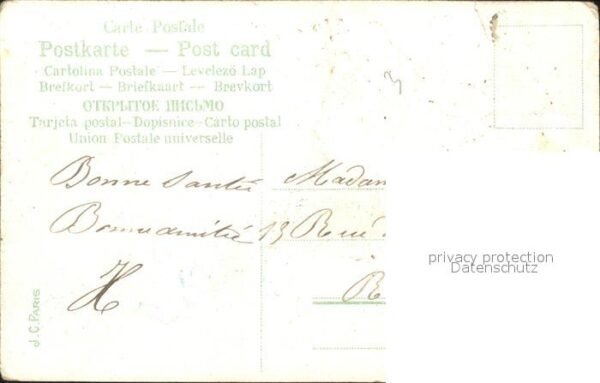 Carte Postale
Postkarte — Post card
Cartolina Postale — Levelező Lap
Brefkort — Briefkaart — Brevkort
ОТКРЫТОЕ ПИСЬМО
Tarjeta postal—Dopisnice—Carto postal
Union Postale universelle
Bonne Santée
Bonne amitié
H
Madam
13 Rue
R
J.C. PARIS
privacy protection
Datenschutz